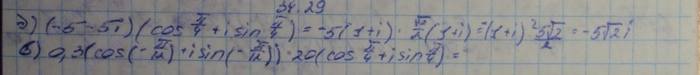 34.29
д) (-5-5i)(cos π/4 + i sin π/4) = -5(1+i) · √2/2 (1+i) = -(1+i)² 5√2/2 = -5√2i
б) 0,3(cos(-π/12) + i sin(-π/12)) · 20(cos π/4 + i sin π/4) =